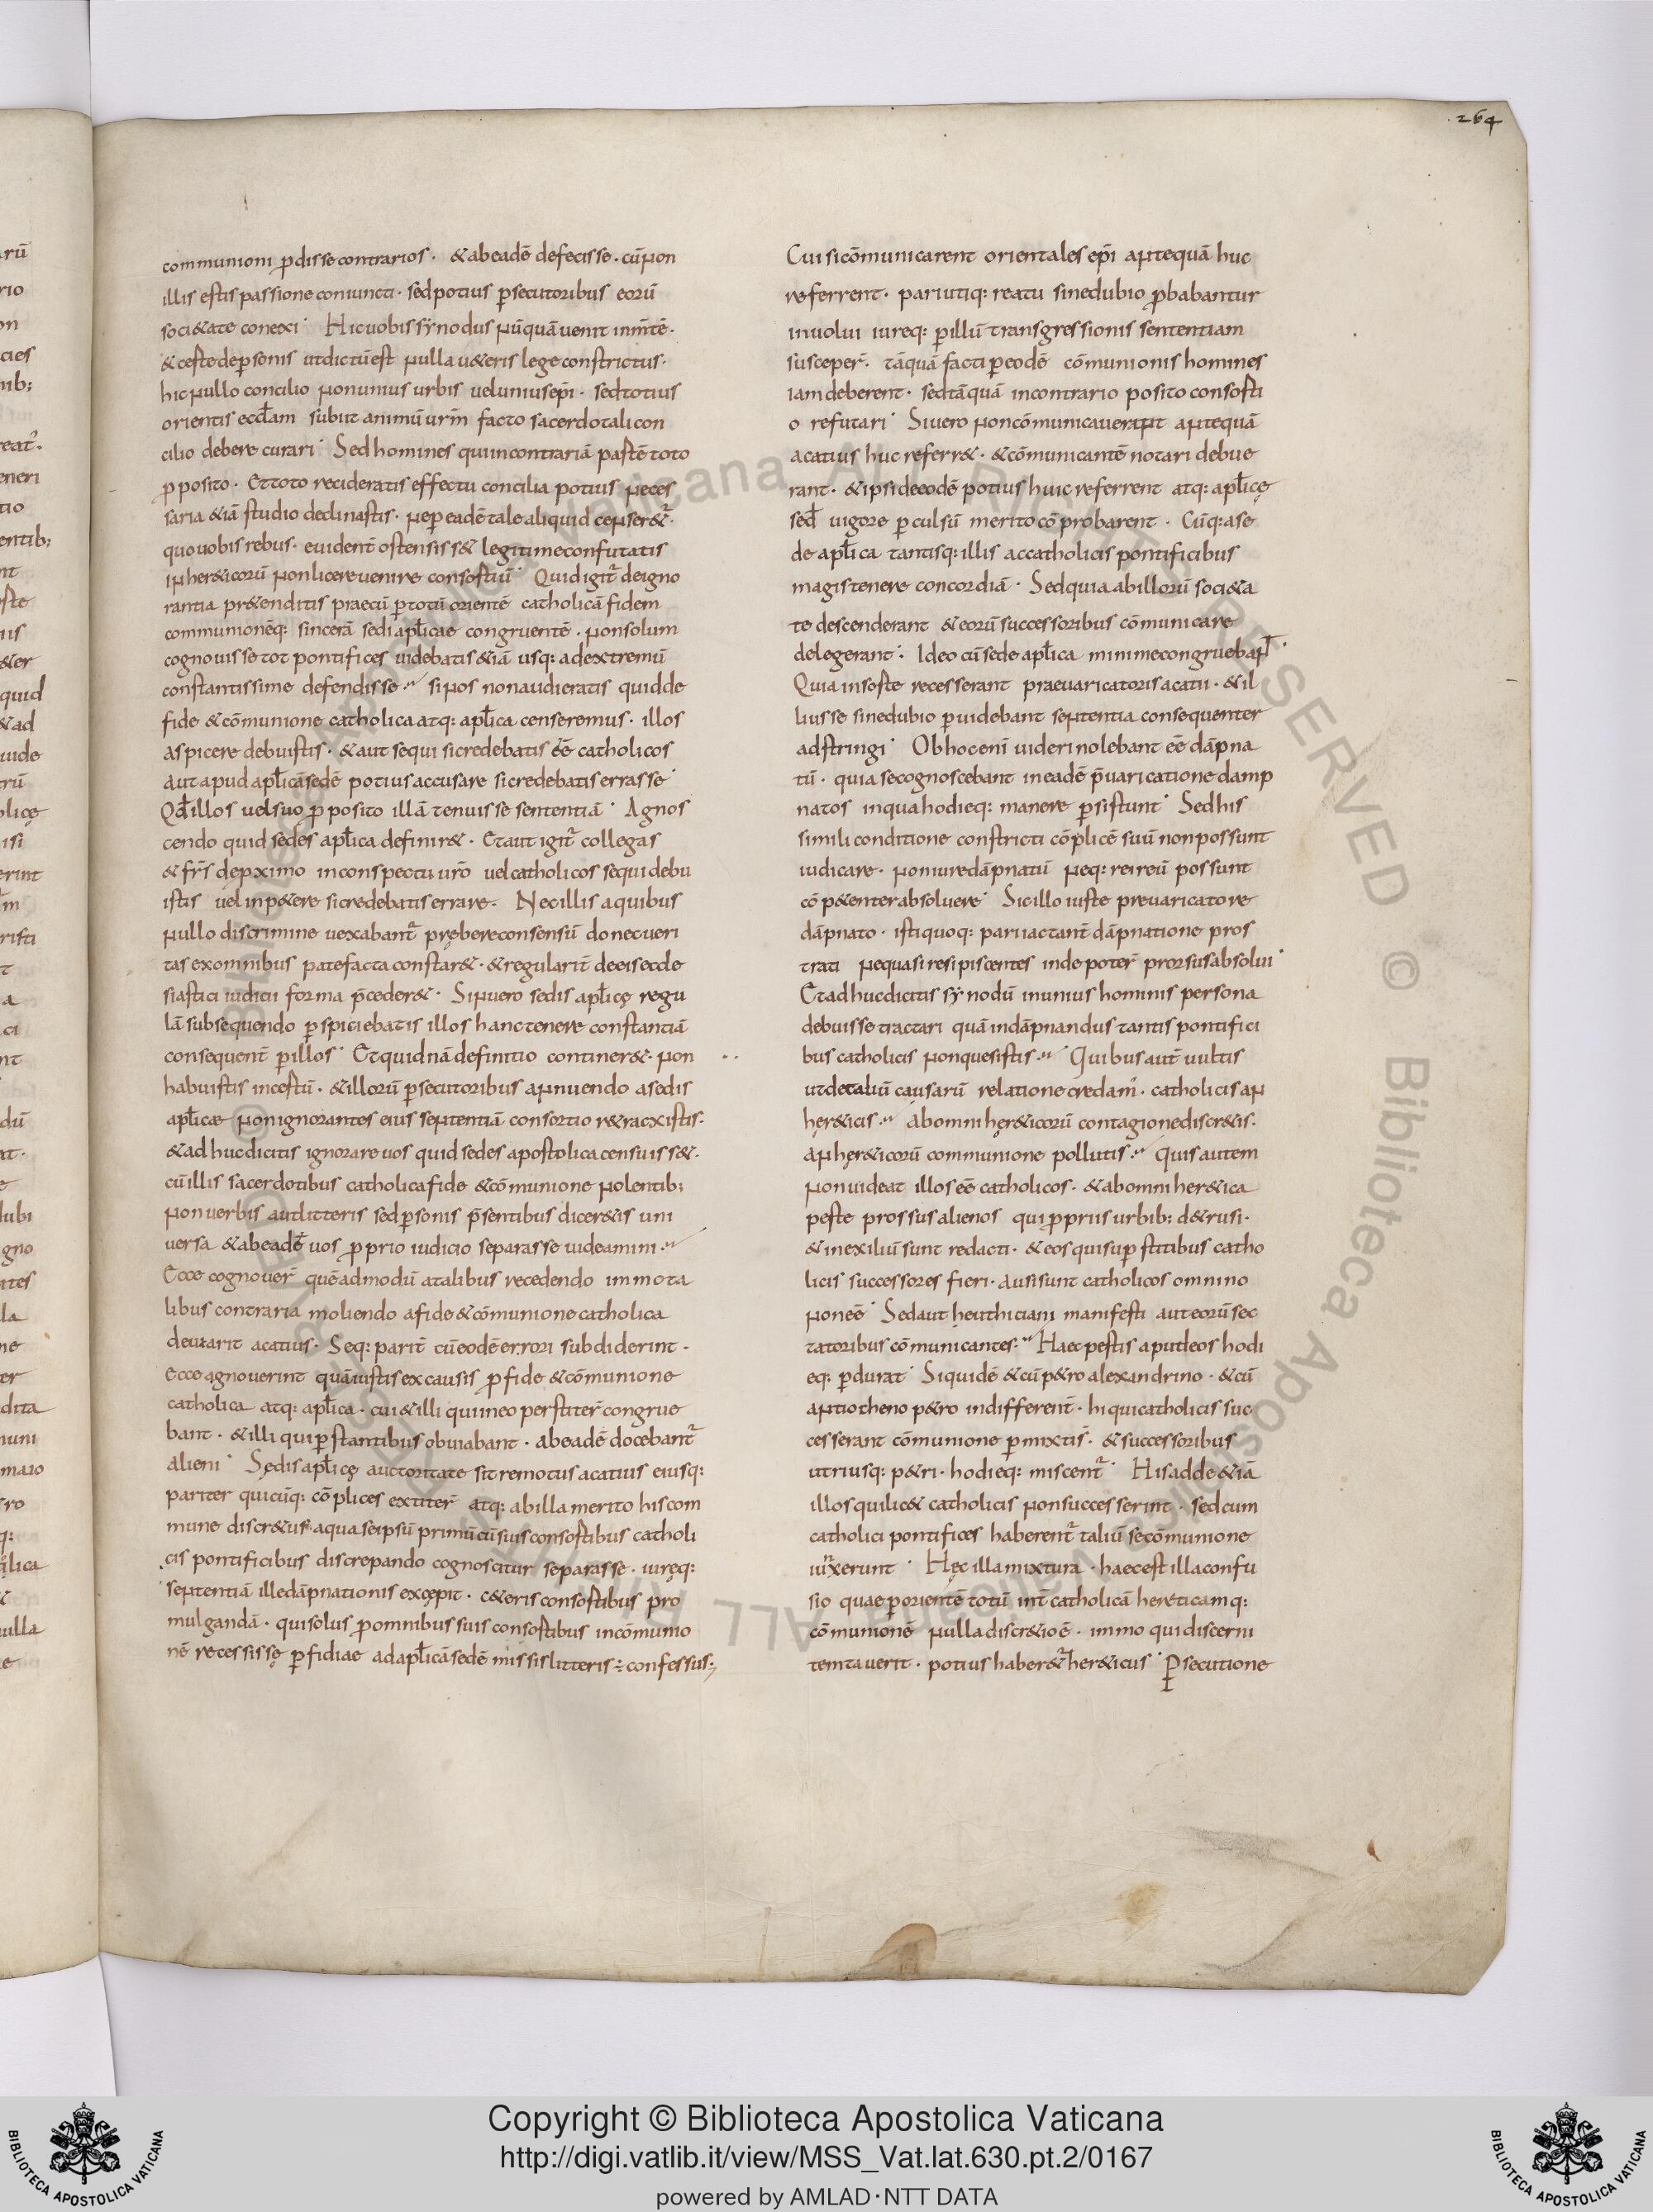 264
communioni ꝑdisse contrarios · & ab eadē defecisse · cū non
illis estis passione coniuncti · sed potius ꝑsecutoribus eorū
soci&ate conexi · Hic uobis synodus nūquā uenit in m̄tē ·
& ceste de ꝑsonis ut dictū est nulla u&eris lege constrictus ·
hic nullo concilio non unius urbis uel unius ep̄i · sed totius
orientis eccłam subiit animū ur̄m facto sacerdotali con
cilio debere curari · Sed homines qui in contrariā pastē toto
ꝓposito · Et toto recideratis effectu concilia potius neces
saria &iā studio declinastis · ne ꝑ eadē tale aliquid censer&̄ ·
quo uobis rebus · euident̄ ostensis s& legitime confutatis
in her&icorū non licere uenire consostiū · Quid igit̄ de igno
rantia pr&enditis praecū ꝑ totū orientē catholicā fidem
communionēq: sincerā sedi apłicae congruentē · non solum
cognouisse tot pontifices uidebatis &iā usq: ad extremū
constantissime defendisse ·" si nos non audieratis quid de
fide & cōmunione catholica atq: apłica censeremus · illos
aspicere debuistis · & aut sequi si credebatis ēē catholicos
Aut apud apłicā sedē potius accusare si credebatis errasse ·
Qđ illos uel suo ꝓposito illā tenuisse sententiā · Agnos
cendo quid sedes apłica definir& · Et aut igit̄ collegas
& fr̄s de ꝓximo in conspectu ur̄o uel catholicos sequi debu
istis uel inp&ere si credebatis errare · Nec illis a quibus
nullo discrimine uexabant̄ prębere consensū donec ueri
tas ex omnibus patefacta constar& · & regularit̄ dei et ecle
siastici iudicii forma p̄ceder& · Sin uero sedis apłicę regu
lā subsequendo ꝑspiciebatis illos hanc tenere constantiā
consequent̄ ꝑ illos · Et quid nā definitio continer& · non
habuistis incestū · & illorū ꝑsecutoribus annuendo a sedis
apłicae non ignorantes eius sententiā consortio r&raxistis ·
& adhuc dicitis ignorare uos quid sedes apostolica censuiss& ·
cū illis sacerdotibus catholica fide & cōmunione nolentib;
non uerbis aut litteris sed ꝑsonis p̄sentibus dicer&is uni
uersa & ab eadē uos ꝓprio iudicio separasse uideamini ·"
Ecce cognouer̄ quēadmodū a talibus recedendo immo ta
libus contraria moliendo a fide & cōmunione catholica
deuiarit acatius · Seq: parit̄ cū eodē errori subdiderint ·
ecce agnouerint quā iustis ex causis ꝓ fide & cōmunione
catholica atq: apłica · cui & illi qui in eo perstiter̄ congrue
bant · & illi qui ꝑstantibus obuiabant · ab eadē docebant̄
alieni · Sędis apłicę auctoritate sit remotus acatius eiusq:
pariter quicūq: cōplices extiter̄ atq: ab illa merito his com
mune discr&us · a qua se ipsū primū cū suis consostibus catholi
cis pontificibus discrepando cognoscitur separasse · iureq:
sententiā ille dāpnationis excępit · c&eris consostibus pro
mulgandā · qui solus ꝓ omnibus suis consostibus in cōmunio
nē recessisse ꝑfidiae ad apłicā sedē missis litteris · confessus ·
Cui si cōmunicarent orientales ep̄i antequā huc
referrent · pari utiq: reatu sine dubio ꝓbabantur
inuolui iureq: ꝑ illū transgressionis sententiam
susceper̄ · tāquā facti ꝑ eodē cōmunionis homines
iam deberent · sed tāquā in contrario posito consosti
o refutari · Si uero non cōmunicauerant antequā
acatius huc referr& · & cōmunicantē notari debue
rant · & ipsi de eodē potius huic referrent atq: apłicę
sed uigore ꝑculsū merito cōprobarent · Cūq: a se
de apłica tantisq: illis ac catholicis pontificibus
magis tenere concordiā · Sed quia ab illorū soci&a
te descenderant & eorū successoribus cōmunicare
delegerant · Ideo cū sede apłica minime congruebant ·
Quia in soste recesserant praeuaricatoris acatii · & il
lius se sine dubio ꝑuidebant sententia consequenter
adstringi · Ob hoc eni uideri nolebant ēē dāpna
tū · quia se cognoscebant in eadē p̄uaricatione damp
natos in qua hodieq: manere ꝑsistunt · Sed his
simili conditione constricti cōplicē suū non possunt
iudicare · non iure dāpnatū neq: rei reū possunt
cōp&enter absoluere · Sic illo iuste preuaricatore
dāpnato · isti quoq: pari iactant̄ dāpnatione pros
trati ne quasi resipiscentes inde poter̄ prorsus absolui ·
Et adhuc dicitis synodū in unius hominis persona
debuisse tractari quā in dāpnandus tantis pontifici
bus catholicis non quesistis ·" Quibus aut̄ uultis
ut de taliū causarū relatione credam̄ · catholicis an
hęr&icis ·" Ab omni hęr&icorū contagione discr&is ·
An hęr&icorū communione pollutis ·" Quis autem
non uideat illos ēē catholicos · & ab omni her&ica
peste prossus alienos qui ꝓpriis urbib: d&rusi ·
& in exiliū sunt redacti · & eos qui suꝑstitibus catho
licis successores fieri · ausi sunt catholicos omnino
non ēē · Sed aut heuthiciani manifesti aut eorū sec
tatoribus cōmunicantes ·" Haec pestis aput eos hodi
eq: ꝑdurat · Siquidē & cū p&ro alexandrino · & cū
antiocheno p&ro indifferent̄ · hi qui catholicis suc
cesserant cōmunione ꝑmixtis · & successoribus
utriusq: p&ri · hodieq: miscent̄ · His adde &iā
illos qui lic& catholicis non successerint · sed cum
catholici pontifices haberent̄ taliū se cōmunione
iunxerunt · Hęc illa mixtura · haec est illa confu
sio quae ꝑ orientē totū int̄ catholicā hereticamq:
cōmunionē nulla discr&io ē · immo qui discerni
temtauerit · potius haber&̄ her&icus · Ꝑsecutione
Copyright © Biblioteca Apostolica Vaticana
http://digi.vatlib.it/view/MSS_Vat.lat.630.pt.2/0167
powered by AMLAD·NTT DATA
BIBLIOTECA APOSTOLICA VATICANA
BIBLIOTECA APOSTOLICA VATICANA